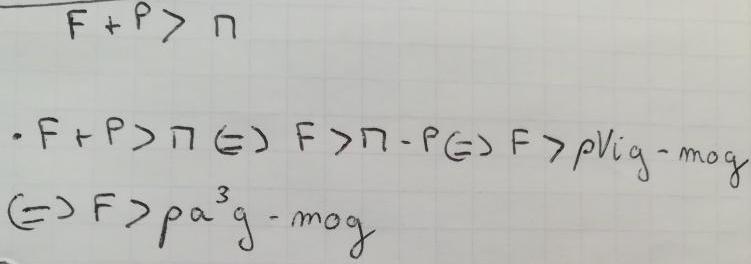 F + P > Π
. F + P > Π ⇔ F > Π - P ⇔ F > ρVig - mog
⇔ F > ρa³g - mog